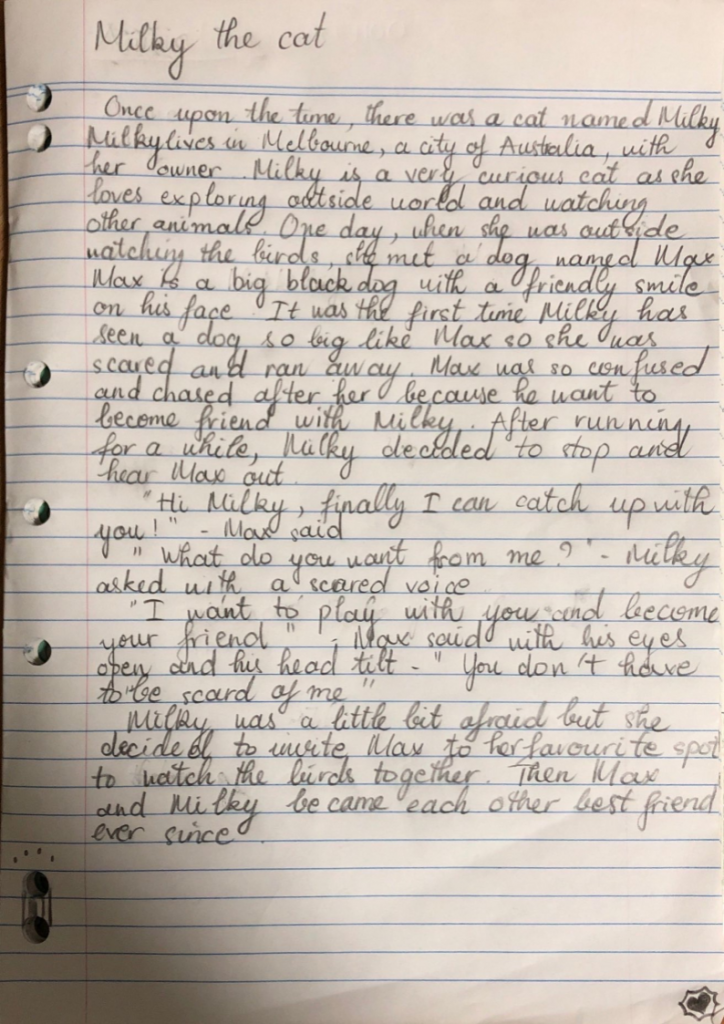 Milky the cat
Once upon the time, there was a cat named Milky
Milky lives in Melbourne, a city of Australia, with
her owner. Milky is a very curious cat as she
loves exploring outside world and watching
other animals. One day, when she was outside
watching the birds, she met a dog named Max
Max is a big black dog with a friendly smile
on his face. It was the first time Milky has
seen a dog so big like Max so she was
scared and ran away. Max was so confused
and chased after her because he want to
become friend with Milky. After running
for a while, Milky decided to stop and
hear Max out.
"Hi Milky, finally I can catch up with
you!" - Max said
"What do you want from me?" - Milky
asked with a scared voice
"I want to play with you and become
your friend" - Max said with his eyes
open and his head tilt - "You don't have
to be scard of me"
Milky was a little bit afraid but she
decided to invite Max to her favourite spot
to watch the birds together. Then Max
and Milky became each other best friend
ever since.